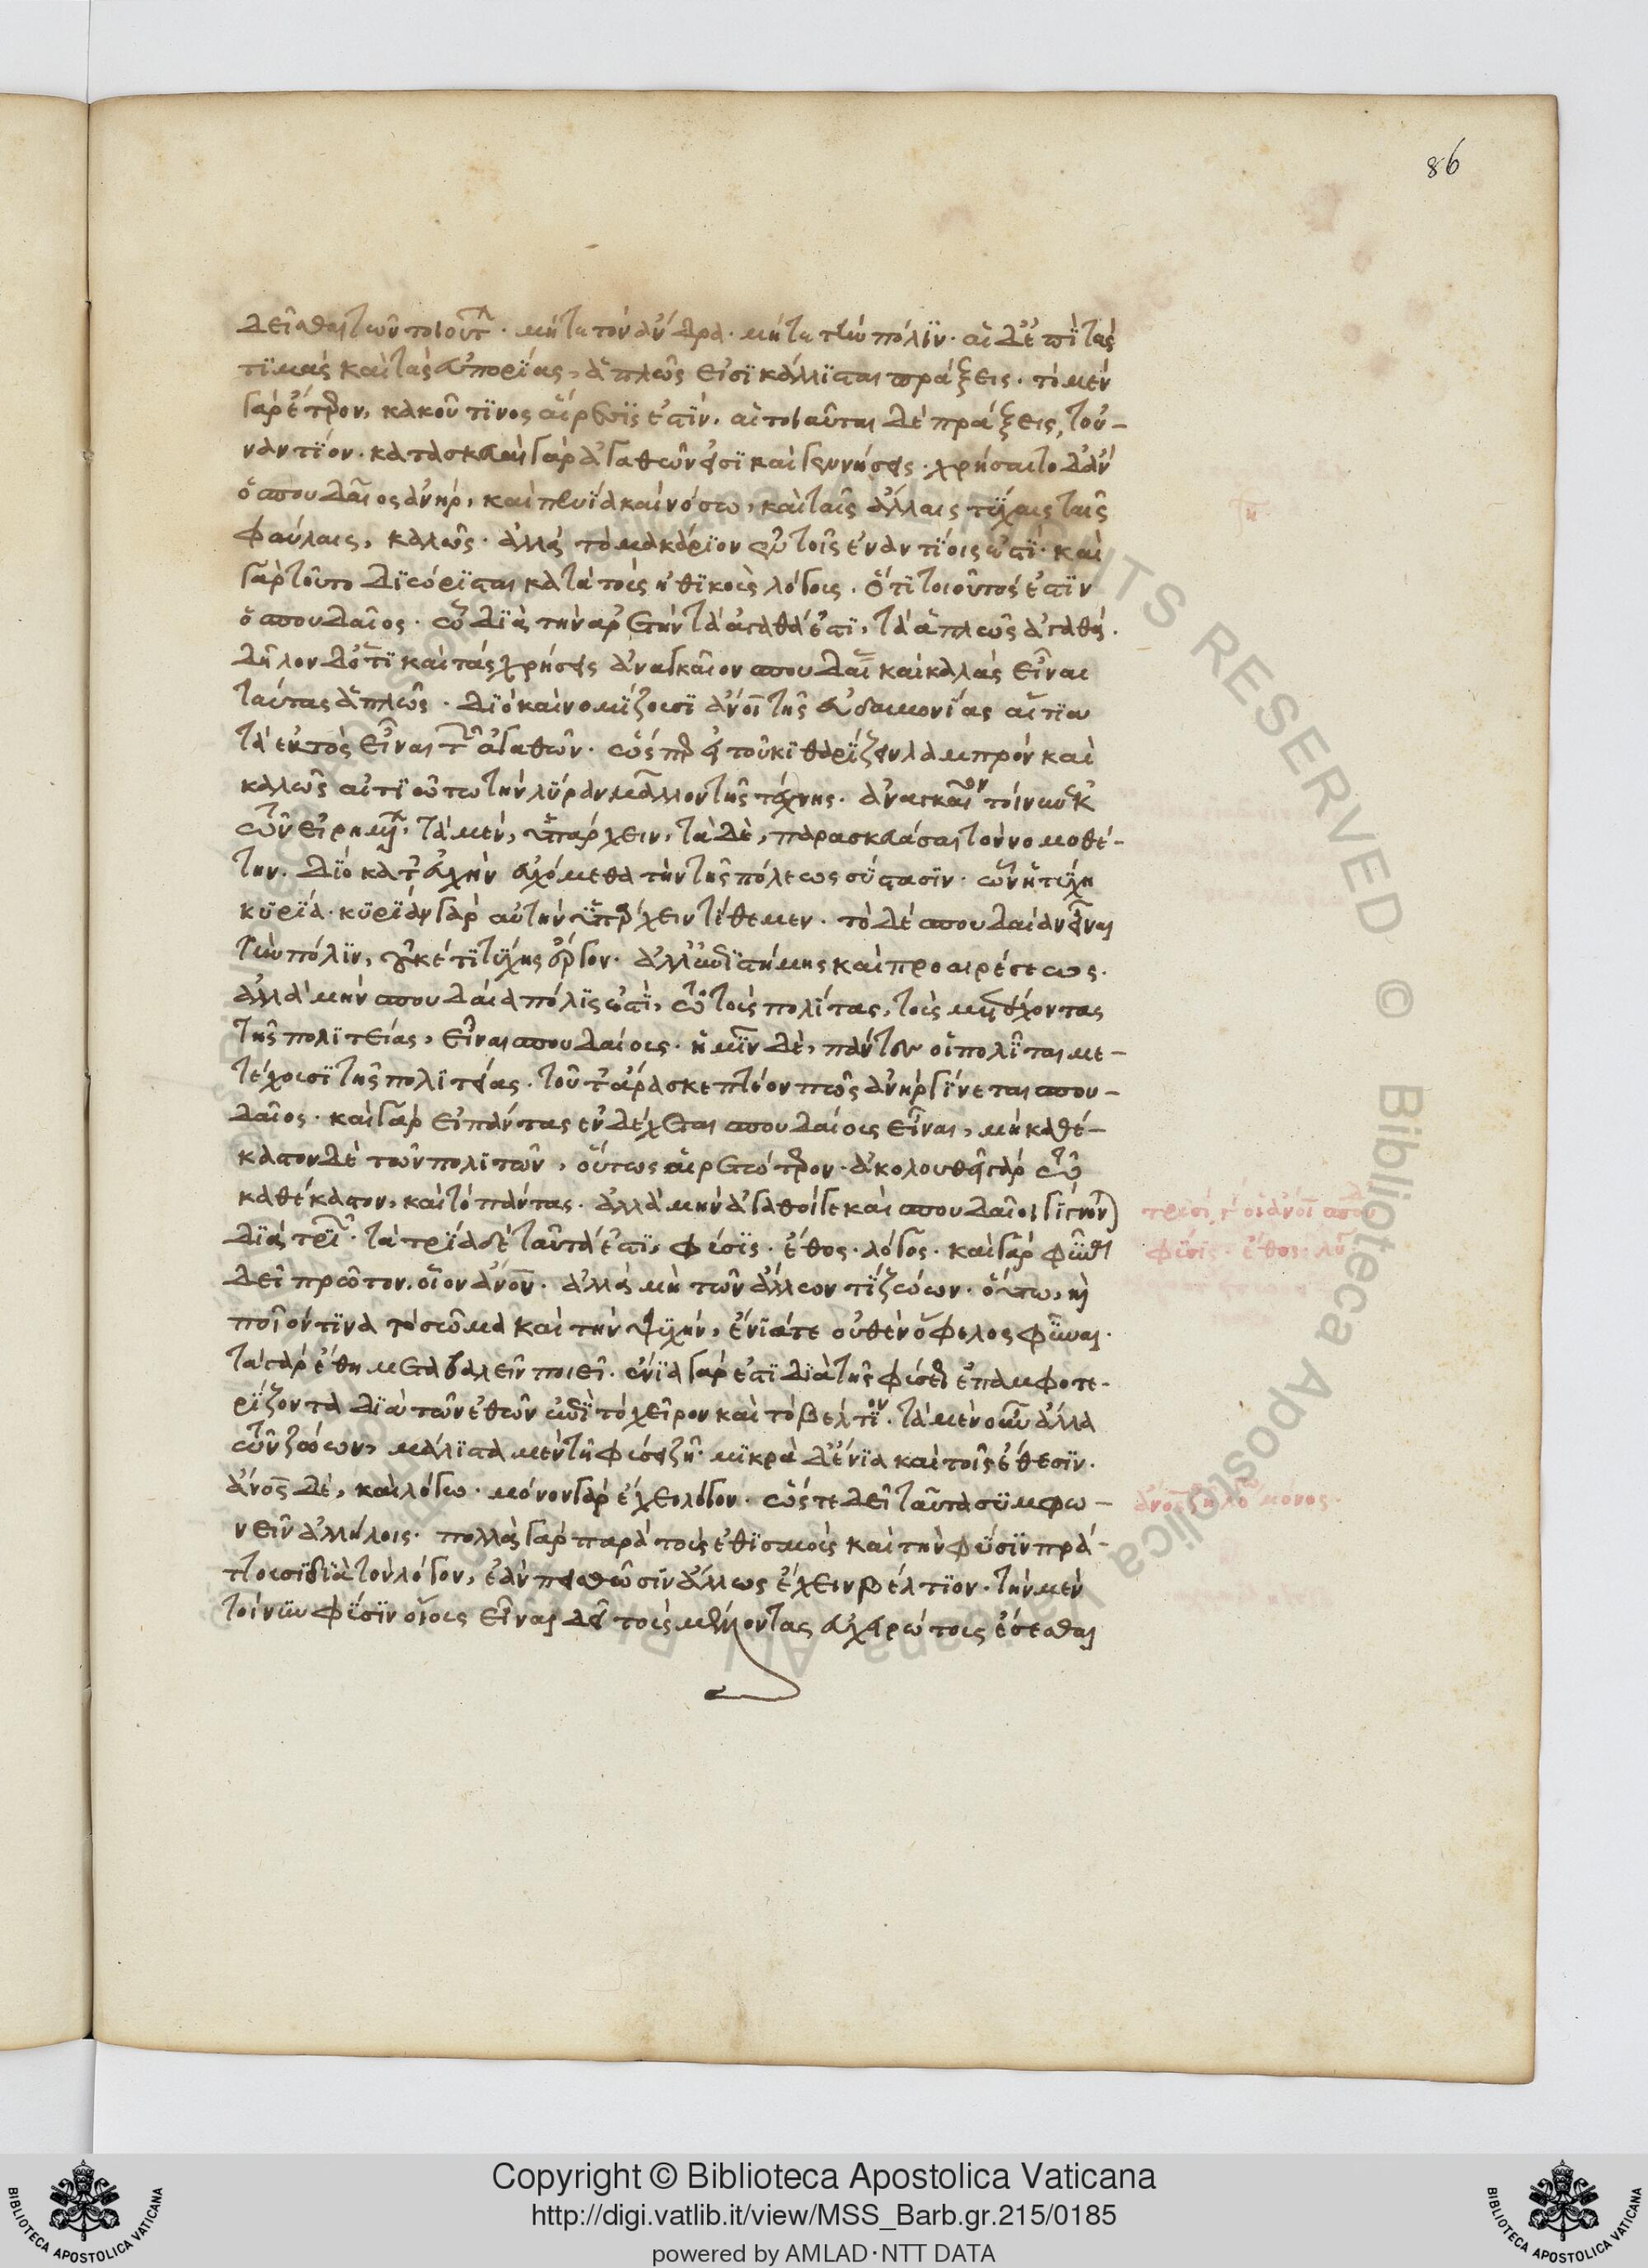 86
δεῖσθαι τῶν τοιούτ· μήτε τὸν ἄνδρα· μήτε τὴν πόλιν· αἱ δ' ἐπὶ τὰς
τιμὰς καὶ τὰς εὐπορίας, ἁπλῶς εἰσὶ κάλλισται πράξεις· τὸ μὲν
γὰρ ἕτερον, κακοῦ τινος αἵρεσίς ἐστιν· αἱ τοιαῦται δὲ πράξεις, τοὐ-
ναντίον· κατασκευαὶ γὰρ ἀγαθῶν εἰσὶ καὶ γεννήσεις· χρήσαιτο δ' ἂν
ὁ σπουδαῖος ἀνὴρ, καὶ πενία καὶ νόσω, καὶ ταῖς ἄλλαις τύχαις ταῖς
φαύλαις, καλῶς· ἀλλὰ τὸ μακάριον ἐν τοῖς ἐναντίοις ἐστί· καὶ
γὰρ τοῦτο διώρισται κατὰ τοὺς ἠθικοὺς λόγους· ὅτι τοιοῦτός ἐστιν
ὁ σπουδαῖος· ὧ διὰ τὴν ἀρετὴν τὰ ἀγαθά ἐστι, τὰ ἁπλῶς ἀγαθά·
δῆλον δ' ὅτι καὶ τὰς χρήσεις ἀναγκαῖον σπουδαί καὶ καλὰς εἶναι
ταύτας ἁπλῶς· διὸ καὶ νομίζουσι ἄνοι τῆς εὐδαιμονίας αἴτια
τὰ ἐκτὸς εἶναι τ ἀγαθῶν· ὥσπερ εἰ τοῦ κιθαρίζειν λαμπρὸν καὶ
καλῶς αἰτιῶτο τὴν λύραν μᾶλλον τῆς τέχνης· ἀναγκαῖον τοίνυν ἐκ
τῶν εἰρημ, τὰ μὲν, ὑπάρχειν, τὰ δὲ, παρασκευάσαι τὸν νομοθέ-
την· διὸ κατ' εὐχὴν εὐχόμεθα τὴν τῆς πόλεως σύστασιν· ὧν ἡ τύχη
κυρία· κυρίαν γὰρ αὐτὴν ὑπάρχειν τίθεμεν· τὸ δὲ σπουδαίαν εἶναι
τὴν πόλιν, οὐκέτι τύχης ἔργον· ἀλλ' ἐπιστήμης καὶ προαιρέσεως·
ἀλλὰ μὴν σπουδαία πόλις ἐστὶ, τῶ τοὺς πολίτας, τοὺς μετέχοντας
τῆς πολιτείας, εἶναι σπουδαίους· ἡμῖν δὲ, πάντες οἱ πολῖται με-
τέχουσι τῆς πολιτείας· τοῦτ' ἄρα σκεπτέον πῶς ἀνὴρ γίνεται σπου-
δαῖος· καὶ γὰρ εἰ πάντας ἐνδέχεται σπουδαίους εἶναι, μὴ καθέ-
καστον δὲ τῶν πολιτῶν, οὕτως αἱρετώτερον· ἀκολουθεῖ γὰρ τῶ
καθέκαστον, καὶ τὸ πάντας· ἀλλὰ μὴν ἀγαθοί γε καὶ σπουδαῖοι γίγνον
διὰ τρι· τὰ τρία δὲ ταῦτά ἐστι, φύσις· ἔθος· λόγος· καὶ γὰρ φῦναι
δεῖ πρῶτον, οἷον ἄνον· ἀλλὰ μὴ τῶν ἄλλων τι ζώων· οὕτω, καὶ
ποῖόν τινα τὸ σῶμα καὶ τὴν ψυχὴν, ἔνιά τε οὐθὲν ὄφελος φῦναι·
τὰ γὰρ ἔθη μεταβαλεῖν ποιεῖ· ἔνια γάρ ἐστι διὰ τῆς φύσεως ἐπαμφοτε-
ρίζοντα διὰ τῶν ἐθῶν ἐπὶ τὸ χεῖρον καὶ τὸ βέλτιον· τὰ μὲν οὖν ἄλλα
τῶν ζώων, μάλιστα μὲν τῇ φύσει ζῆ· μικρὰ δ' ἔνια καὶ τοῖς ἔθεσιν·
ἄνος δὲ, καὶ λόγω· μόνον γὰρ ἔχει λόγον· ὥστε δεῖ ταῦτα συμφω-
νεῖν ἀλλήλοις· πολλὰ γὰρ παρὰ τοὺς ἐθισμοὺς καὶ τὴν φύσιν πρά-
ττουσι διὰ τὸν λόγον, ἐὰν πεισθῶσιν ἄλλως ἔχειν βέλτιον· τὴν μὲν
τοίνυν φύσιν οἵους εἶναι δεῖ τοὺς μέλλοντας εὐχειρώτους ἔσεσθαι
τρισί οἱ ἄνοι σπου
φύσις· ἔθος· λό